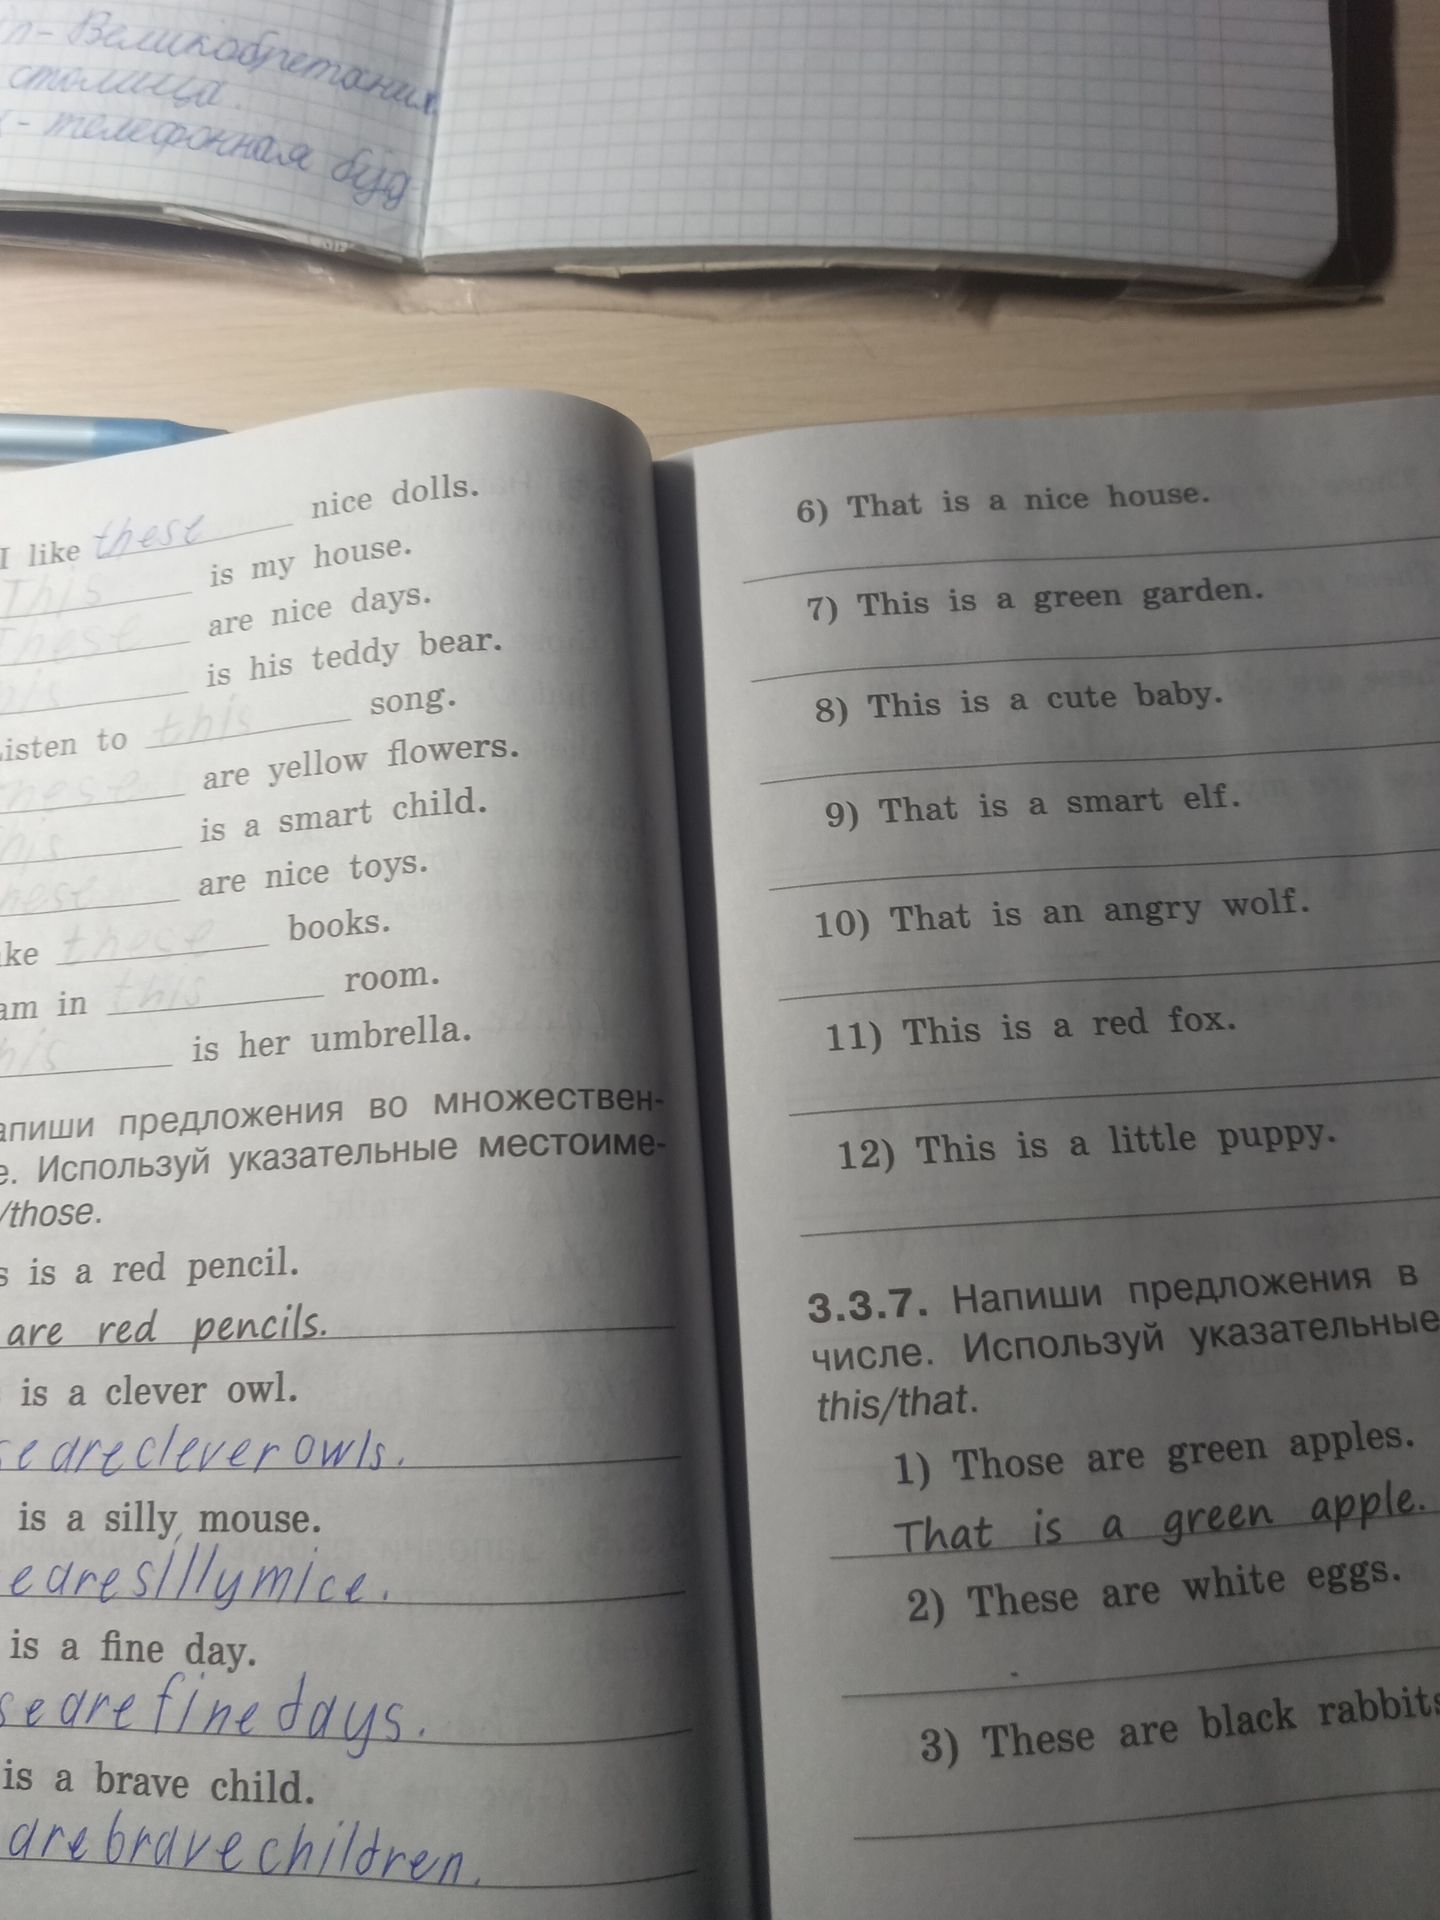 n - Великобретания.
столица.
- телефонная буд
I like these nice dolls.
This is my house.
These are nice days.
his is his teddy bear.
isten to this song.
hese are yellow flowers.
his is a smart child.
hese are nice toys.
ke these books.
am in this room.
his is her umbrella.
апиши предложения во множествен-
е. Используй указательные местоиме-
/those.
s is a red pencil.
are red pencils.
is a clever owl.
se are clever owls.
is a silly mouse.
e are silly mice.
is a fine day.
se are fine days.
is a brave child.
are brave children.
6) That is a nice house.
7) This is a green garden.
8) This is a cute baby.
9) That is a smart elf.
10) That is an angry wolf.
11) This is a red fox.
12) This is a little puppy.
3.3.7. Напиши предложения в
числе. Используй указательные
this/that.
1) Those are green apples.
That is a green apple.
2) These are white eggs.
3) These are black rabbits